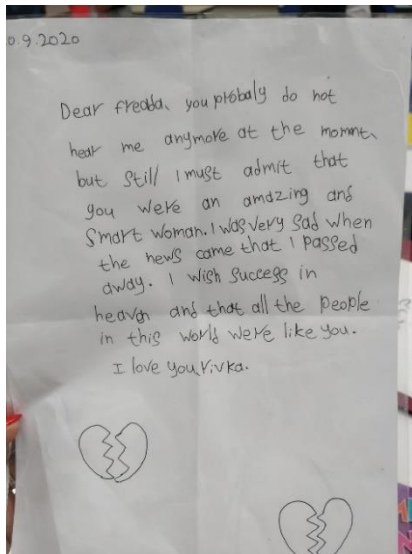 0.9.2020
Dear freada, you probaly do not
hear me anymore at the momnt,
but still I must admit that
you were an amazing and
smart woman. I was very sad when
the news came that I passed
away. I wish success in
heaven and that all the people
in this world were like you.
I love you, Rivka.